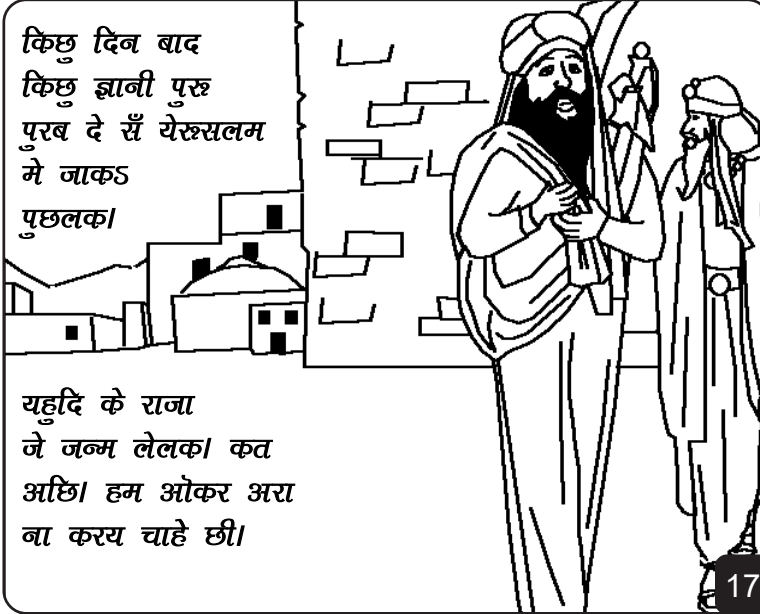 किछु दिन बाद
किछु ज्ञानी पुरू
पुरब दे सँ येरूसलम
मे जाकऽ
पुछलक।
यहुदि के राजा
जे जन्म लेलक। कत
अछि। हम ओकर अरा
ना करय चाहे छी।
17